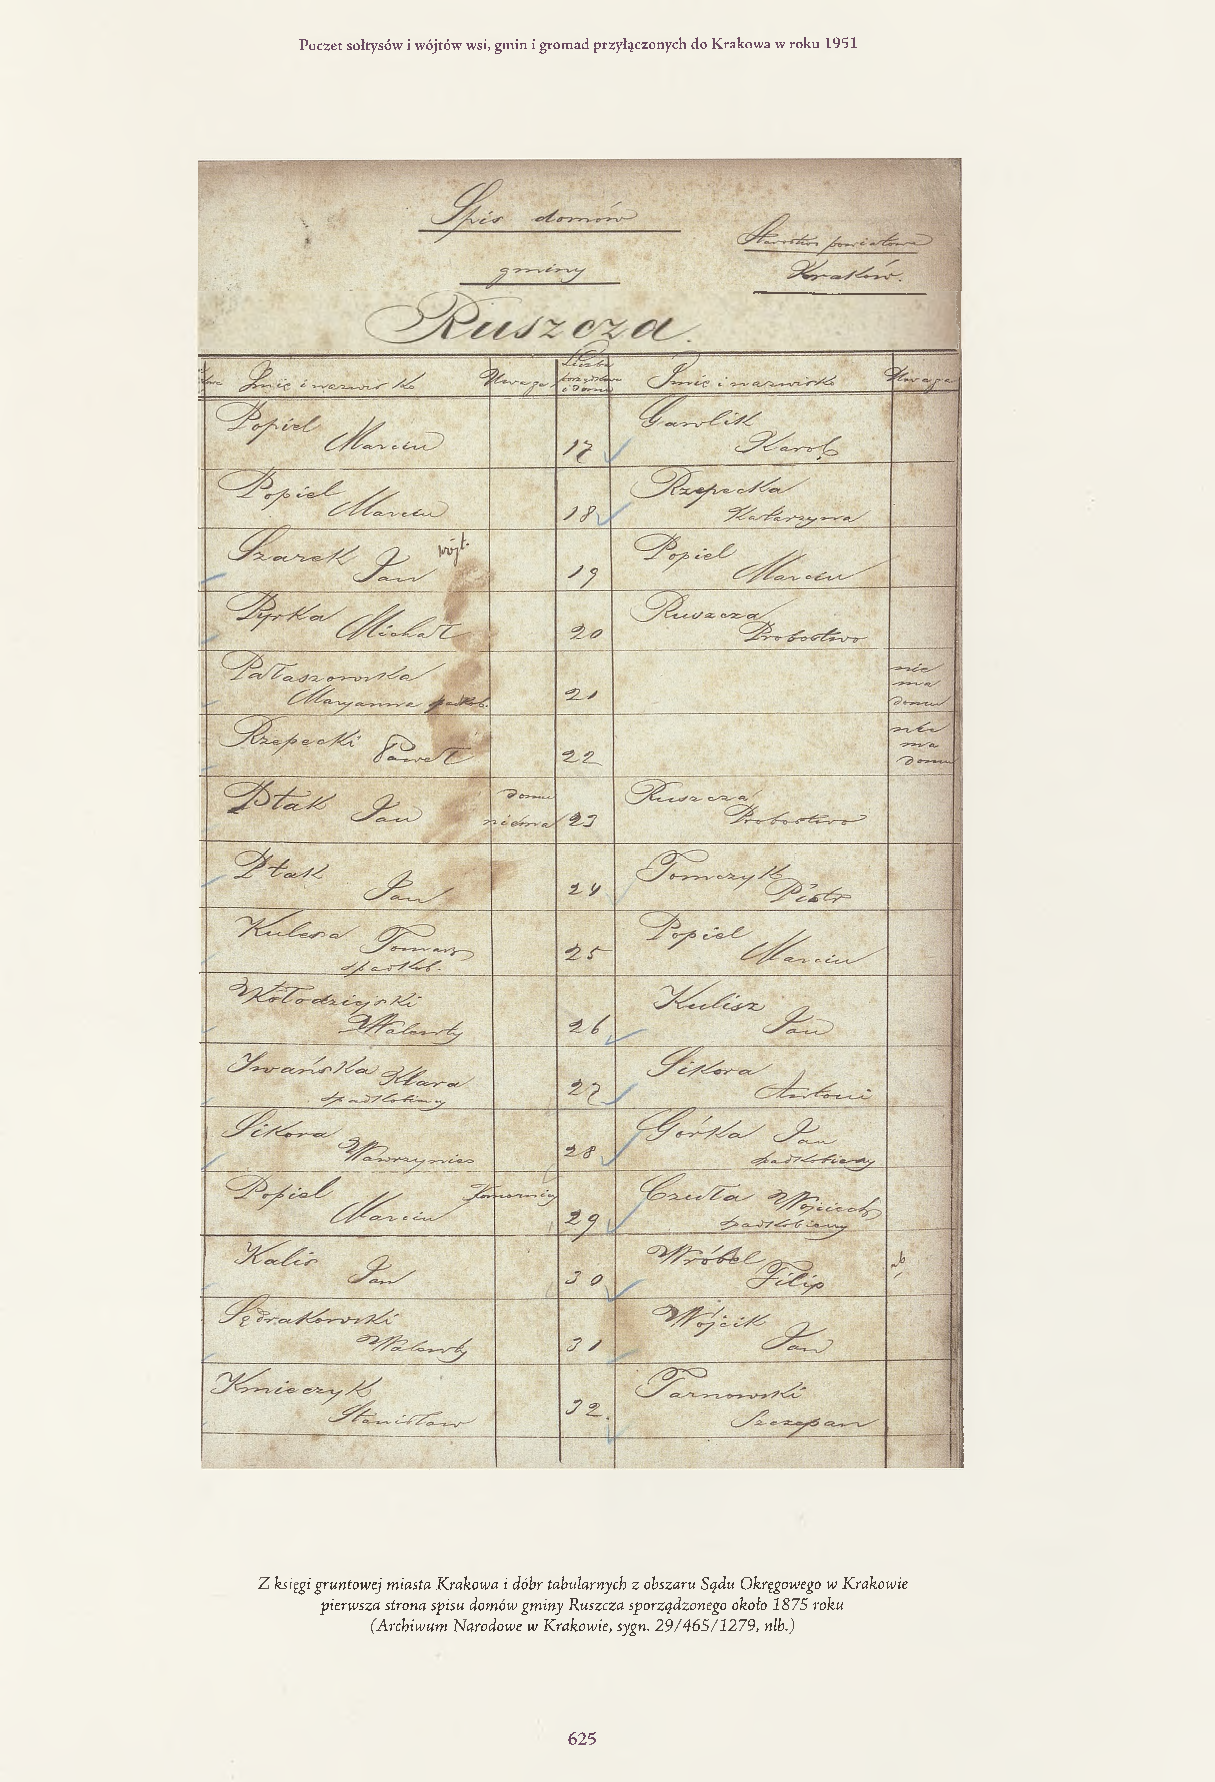 Poczet sołtysów i wójtów wsi, gmin i gromad przyłączonych do Krakowa w roku 1951
Spis domów
Starostwo powiatowe
gminy
Kraków.
Ruszcza.
Imię i nazwisko Uwaga Liczba porządkowa domu Imię i nazwisko Uwaga
Popiel
Marcin
17
Garolik
Karol
Popiel
Marcin
18
Rzepecka
Katarzyna
Szarek Jan wójt.
19
Popiel
Marcin
Pyrka Michał
20
Ruszcza
Probostwo
Pałaszowska
Maryanna spadkob.
21
nie
ma
domu
Rzepecki Paweł
22
nie
ma
domu
Ptak Jan
domu
niema
23
Ruszcza
Probostwo
Ptak
Jan
24
Tomczyk
Piotr
Kulesa Tomasz
spadkob.
25
Popiel
Marcin
Wołodziejski
Walenty
26
Kulisz
Jan
Iwańska Klara
spadkobiercy
27
Sikora
Antoni
Sikora
Wawrzyniec
28
Górka Jan
spadkobiercy
Popiel
Marcin
Komornicy
29
Czuła Wojciech
spadkobiercy
Kalis
Jan
30
Wróbel
Filip
Sędrakowski
Walenty
31
Wójcik
Jan
Kmieczyk
Stanisław
32.
Tarnowski
Szczepan
Z księgi gruntowej miasta Krakowa i dóbr tabularnych z obszaru Sądu Okręgowego w Krakowie
pierwsza strona spisu domów gminy Ruszcza sporządzonego około 1875 roku
(Archiwum Narodowe w Krakowie, sygn. 29/465/1279, nlb.)
625